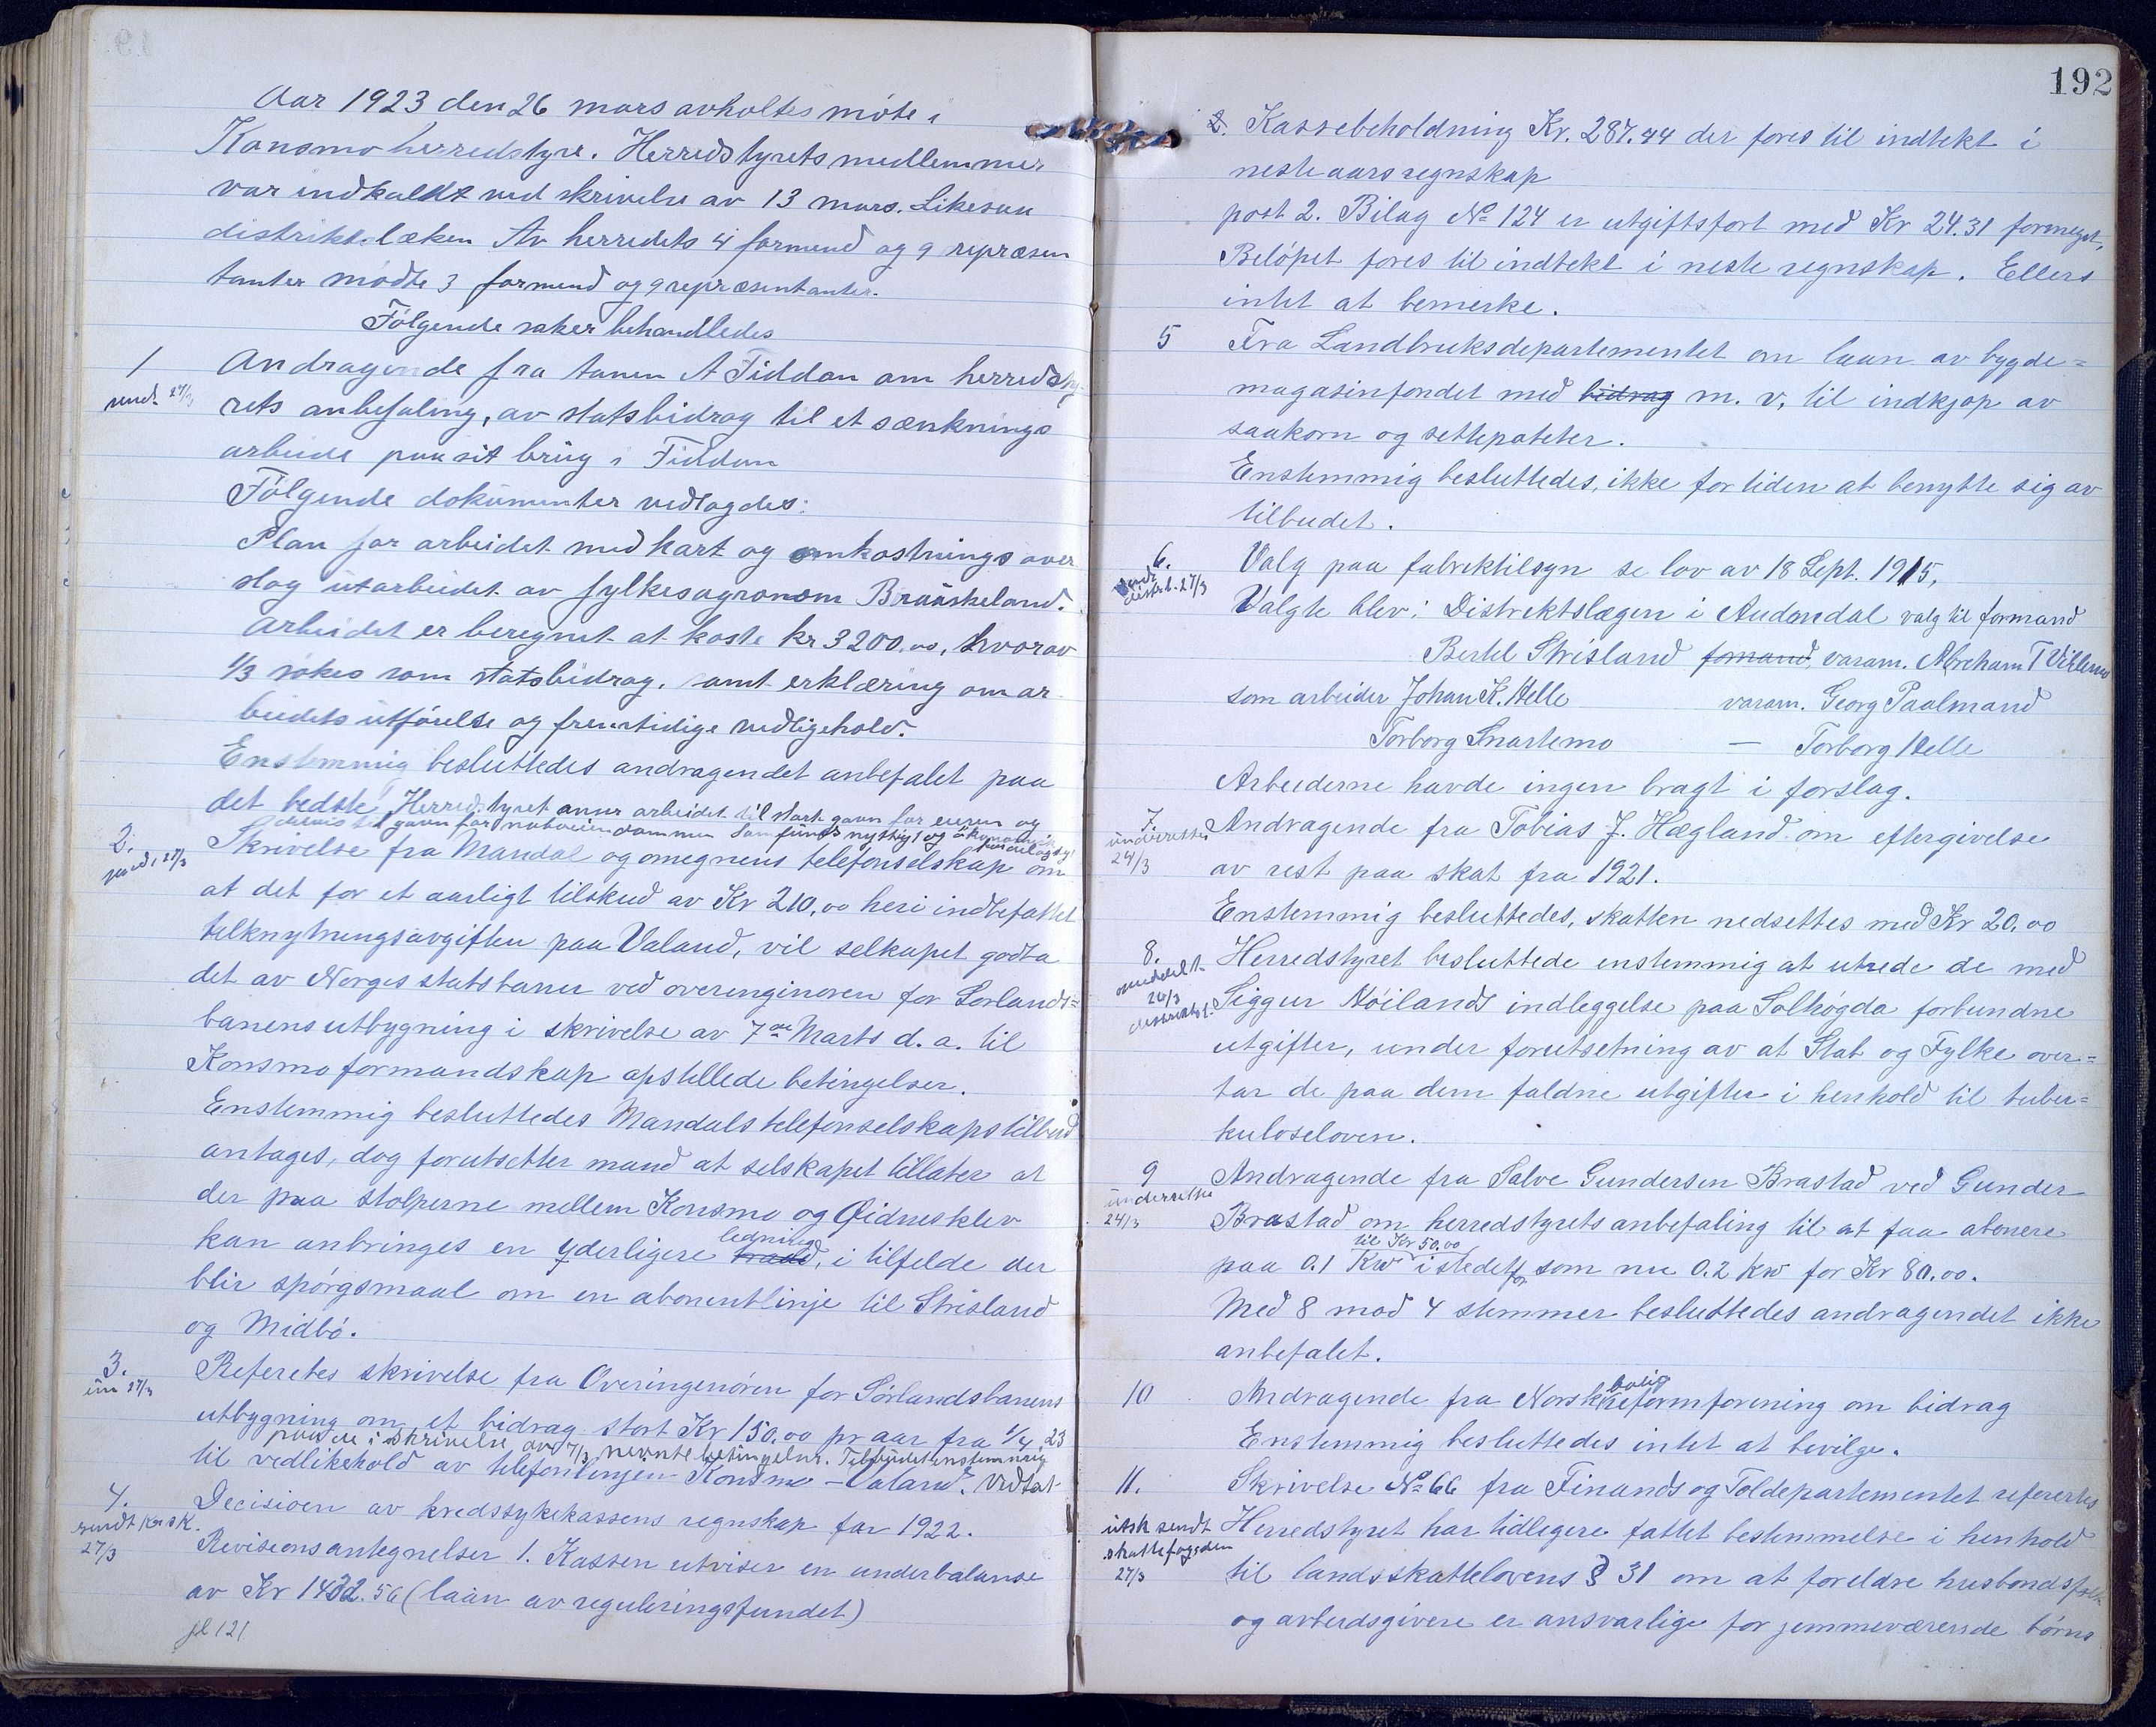 Aar 1923 den 26 mars avholtes möte i
Konsmo herredstyre. Herredstyrets medlemmer
var indkaldt ved skrivelse av 13 mars. Likesaa
distriktslæken Av herredets 4 formend og 9 repræsen
tanter mödte 3 formend og 9 repræsentanter.
Fölgende saker behandledes
1 Andragende fra Tanen A Fiddan om herredsty-
send. 27/3
rets anbefaling, av statsbidrag til et sænknings
arbeide paa sit brug i Fiddan
Fölgende dokumenter vedlagdes:
Plan for arbeidet med kart og omkostnings over
slag utarbeidet av fylkesagronom Braaskeland.
Arbeidet er beregnet at koste kr 3200.00, hvorav
1/3 sökes som statsbidrag, samt erklæring om ar
beidets utförelse og fremtidige vedligehold.
Enstemmig besluttedes andragendet anbefalet paa
det bedste Herredstyret anser arbeidet til stort gavn for eieren og
delvis til gavn for naboeiendommen samfunds nyttig og ökonomisk
2. Skrivelse fra Mandal og omegnens telefonselskap om
send. 27/3
at det for et aarligt tilskud av Kr 210,00 heri indbefattet
tilknytningsavgiften paa Valand, vil selkapet godta
det av Norges statsbaner ved overenginören for Sorlands=
banens utbygning i skrivelse av 7de Marts d. a. til
Konsmo formandskap opstillede betingelser.
Enstemmig besluttedes Mandals telefonselskaps tilbud
antages, dog forutsetter mand at selskapet tillater at
der paa stolperne mellem Konsmo og Öidnesklev
kan anbringes en yderligere traad ledning, i tilfelde der
blir spörgsmaal om en abonentlinje til Strisland
og Midbö.
3. Refertes skrivelse fra Overingenören for Sörlandsbanens
un 27/3
utbygning om et bidrag stort Kr 150.00 pr aar fra 1/4 23
paa de i skrivelse av 7/3 nevnte betingelser. Tilbudet enstemmig
til vedlikehold av telefonlinjen Konsmo - Valand. Vedtat
4. Decisioen av kredssykekassens regnskap for 1922.
sendt krsk.
27/3
Revisionsantegnelser 1. Kassen utviser en underbalanse
av Kr 1432.56 (laan av reguleringsfundet)
fl 121
192
2. Kassebeholdning Kr. 287.44 der fores til indtekt i
neste aars regnskap
post 2. Bilag № 124 er utgiftsfort med Kr 24.31 formeget,
Belöpet fores til indtekt i neste regnskap. Ellers
intet at bemerke.
5 Fra Landbruksdepartementet om laan av bygde=
magasinfondet med bidrag m. v. til indkjop av
saakorn og settepoteter.
Enstemmig besluttedes, ikke for tiden at benytte sig av
tilbudet.
6. Valg paa fabriktilsyn se lov av 18 Sept. 1915,
sendt
distr.l. 27/3
Valgte blev: Distriktslægen i Audnedal valg til formand
Bertel Strisland formand, varam. Abraham T Vihlemo
som arbeider Johan K. Helle varam. Georg Paalmand
Torborg Snartemo — Torborg Helle
Arbeiderne havde ingen bragt i forslag.
7. Andragende fra Tobias J. Hægland om eftergivelse
underrettet
24/3
av rest paa skat fra 1921.
Enstemmig besluttedes, skatten nedsettes med Kr 20.00
8. Herredstyret besluttede enstemmig at utrede de med
meddelt
24/3
distriktsl.
Siggur Nöilands indleggelse paa Solhögda forbundne
utgifter, under forutsetning av at Stat og Fylke over=
tar de paa dem faldne utgifter i henhold til tuber=
kuloseloven.
9 Andragende fra Salve Gundersen Brastad ved Gunder
underrettet
24/3
Brastad om herredstyrets anbefaling til at faa abonere
til Kr 50.00
paa 0.1 Kw istedetfor som nu 0.2 Kw for Kr 80.00.
Med 8 mod 4 stemmer besluttedes andragendet ikke
anbefalet.
10 Andragende fra Norsk boligreformforening om bidrag
Enstemmig besluttedes intet at bevilge.
11. Skrivelse № 66 fra Finands og Toldepartementet refertes
utsk sendt
skattefogden
27/3
Herredstyret har tidligere fattet bestemmelse i henhold
til landsskattelovens § 31 om at foreldre husbondsfolk
og arbeidsgivere er ansvarlige for jemmeværende börns